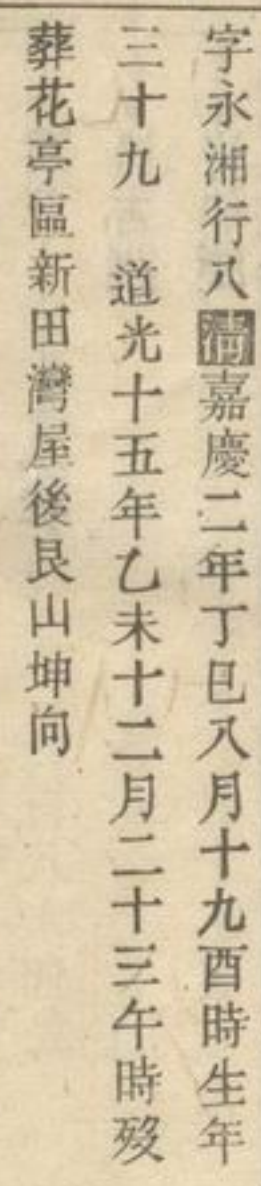 字永湘行八清嘉慶二年丁巳八月十九酉時生年
三十九　道光十五年乙未十二月二十三午時歿
葬花亭區新田灣屋後艮山坤向